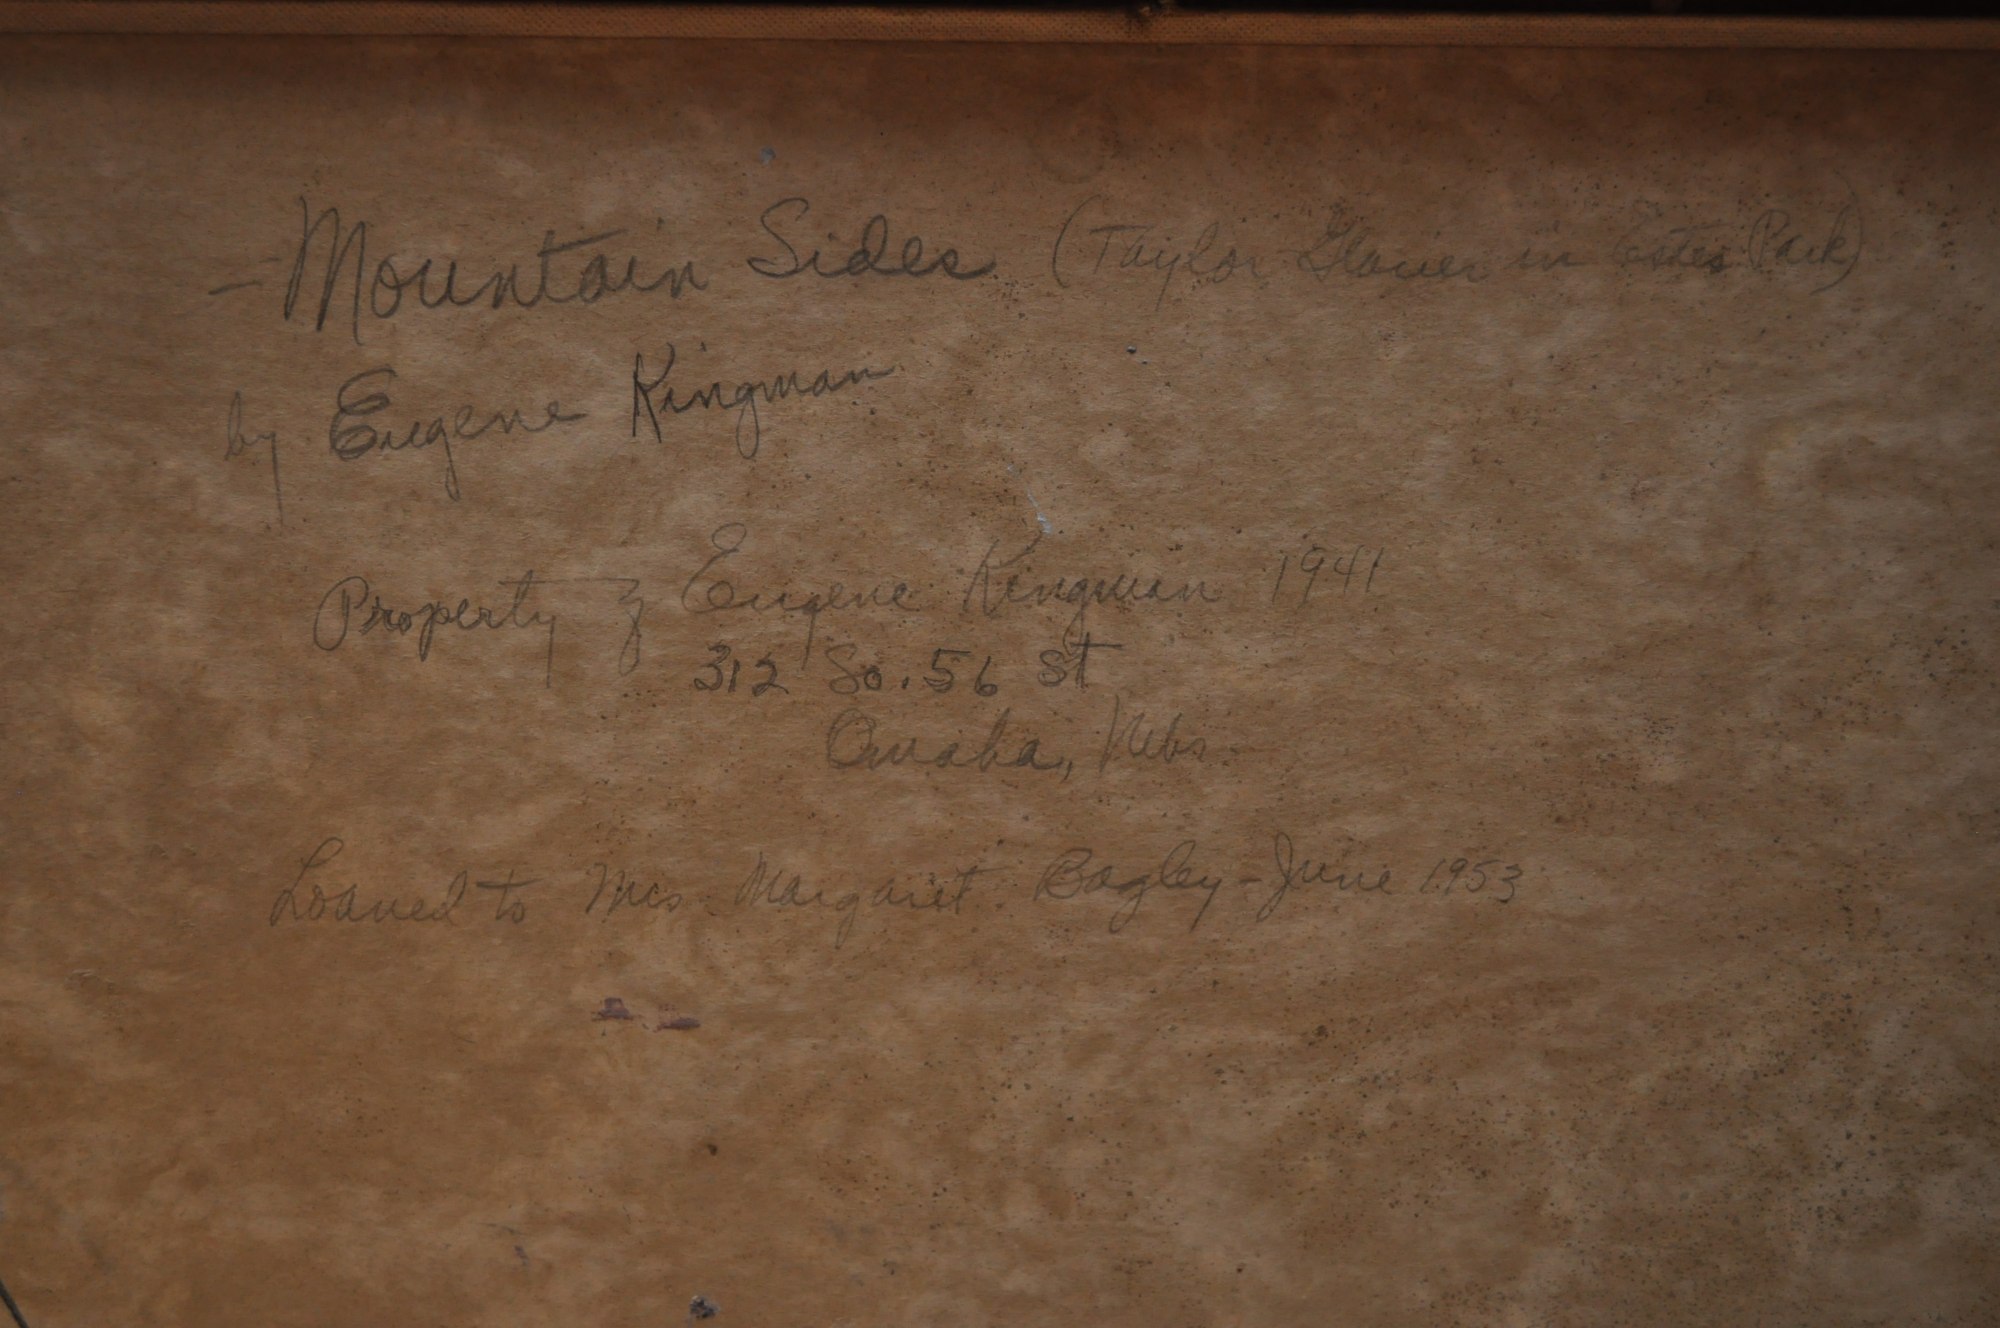 - Mountain Sides (Taylor Glacier in Estes Park)
by Eugene Kingman
Property of Eugene Kingman 1941
312 So. 56 St
Omaha, Nebr
Loaned to Mrs Margaret Bagley - June 1953